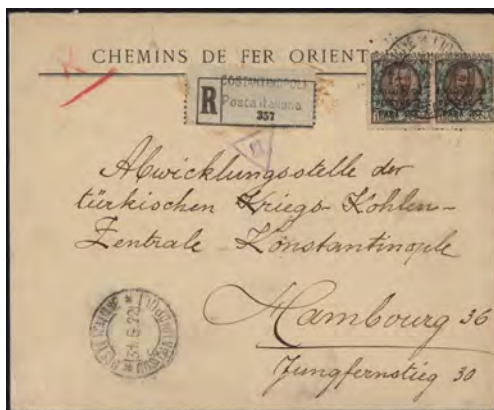 CHEMINS DE FER ORIENT
COSTANTINOPOLI
R Posta italiana
357
Abwicklungsstelle der
türkischen Kriegs-Kohlen-
Zentrale Konstantinople
Hambourg 36
Jungfernstieg 30